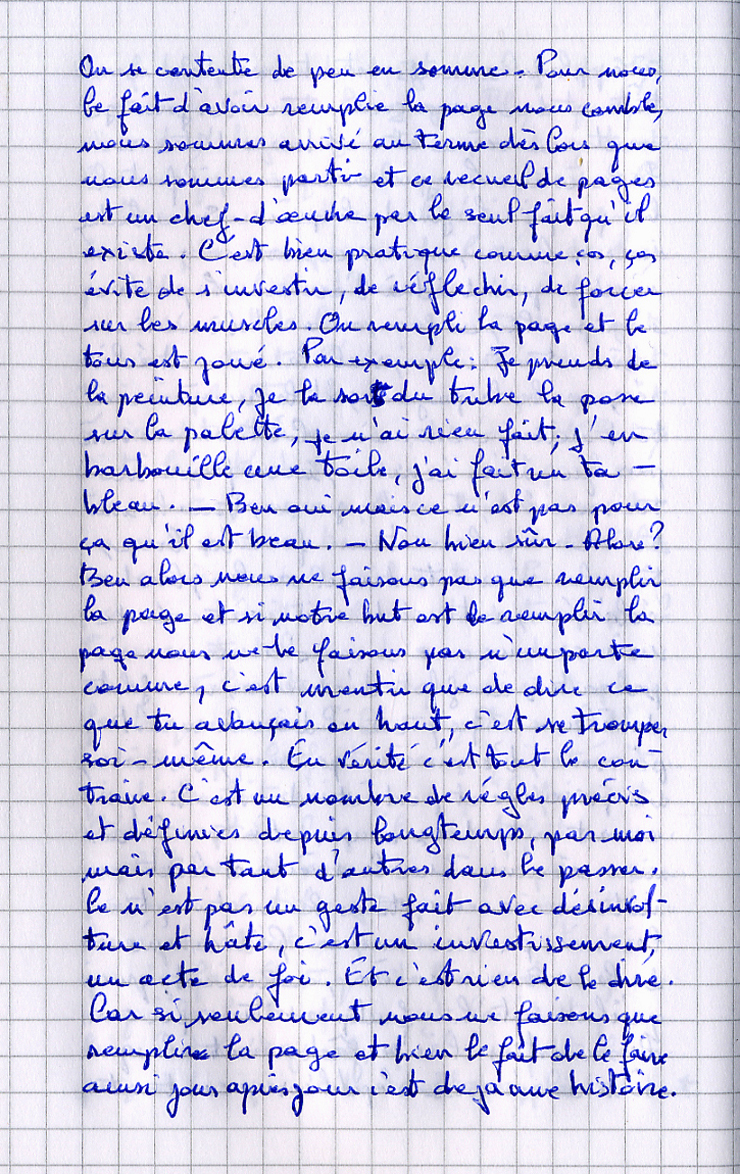 On se contente de peu en somme. Pour nous,
le fait d'avoir remplie la page nous comble,
nous sommes arrivé au terme dès lors que
nous sommes parti et ce recueil de pages
est un chef-d'œuvre par le seul fait qu'il
existe. C'est bien pratique comme ça, ça
évite de s'investir, de réflechir, de forcer
sur les muscles. On rempli la page et le
tous est joué. Par exemple: Je prends de
la peinture, je la sort du tube la pose
sur la palette, je n'ai rien fait; j'en
barbouille une toile, j'ai fait un ta-
bleau. — Ben oui mais ce n'est pas pour
ça qu'il est beau. — Non bien sûr. Alors?
Ben alors nous ne faisons pas que remplir
la page et si notre but est de remplir la
page nous ne le faisons pas n'importe
comme, c'est mentir que de dire ce
que tu avançais en haut, c'est se tromper
soi-même. En vérité c'est tout le con-
traire. C'est un nombre de règles précis
et définies depuis longtemps, par moi
mais par tant d'autres dans le passer.
Ce n'est pas un geste fait avec désinvol-
ture et hâte, c'est un investissement,
un acte de foi. Et c'est rien de le dire.
Car si seulement nous ne faisons que
remplir la page et bien le fait de le faire
ainsi jour après jour c'est deja une histoire.